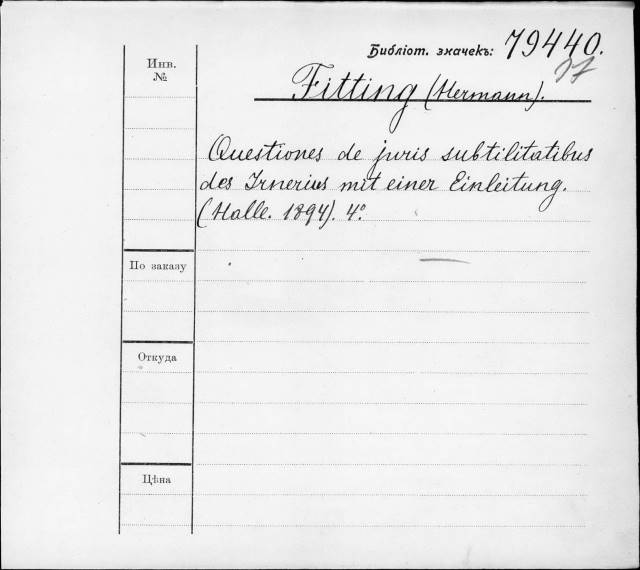 Библіот. значекъ: 79440.
97
Инв.
№
Fitting (Hermann).
Questiones de juris subtilitatibus
des Irnerius mit einer Einleitung.
(Halle. 1894). 4º.
По заказу
Откуда
Цѣна